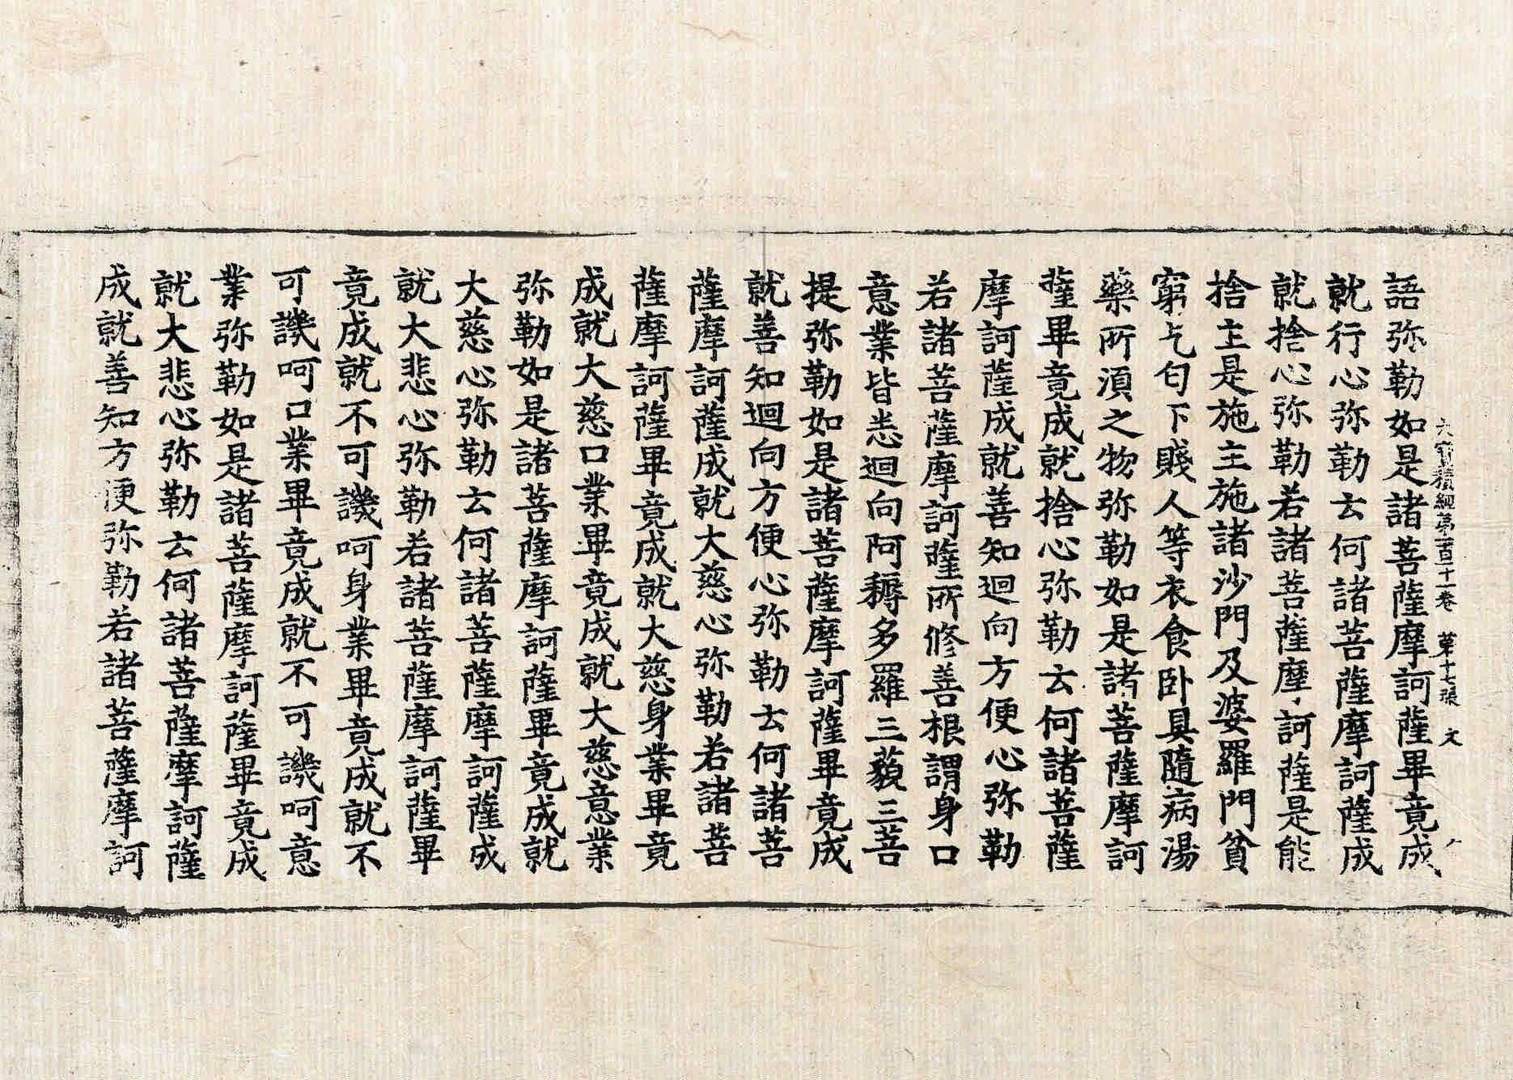 大寶積經第一百十一卷　第十七張　文
語弥勒如是諸菩薩摩訶薩畢竟成
就行心弥勒云何諸菩薩摩訶薩成
就捨心弥勒若諸菩薩摩訶薩是能
捨主是施主施諸沙門及婆羅門貧
窮乞匂下賤人等衣食卧具隨病湯
藥所湏之物弥勒如是諸菩薩摩訶
薩畢竟成就捨心弥勒云何諸菩薩
摩訶薩成就善知迴向方便心弥勒
若諸菩薩摩訶薩所修善根謂身口
意業皆悉迴向阿耨多羅三藐三菩
提弥勒如是諸菩薩摩訶薩畢竟成
就善知迴向方便心弥勒云何諸菩
薩摩訶薩成就大慈心弥勒若諸菩
薩摩訶薩畢竟成就大慈身業畢竟
成就大慈口業畢竟成就大慈意業
弥勒如是諸菩薩摩訶薩畢竟成就
大慈心弥勒云何諸菩薩摩訶薩成
就大悲心弥勒若諸菩薩摩訶薩畢
竟成就不可譏呵身業畢竟成就不
可譏呵口業畢竟成就不可譏呵意
業弥勒如是諸菩薩摩訶薩畢竟成
就大悲心弥勒云何諸菩薩摩訶薩
成就善知方便弥勒若諸菩薩摩訶